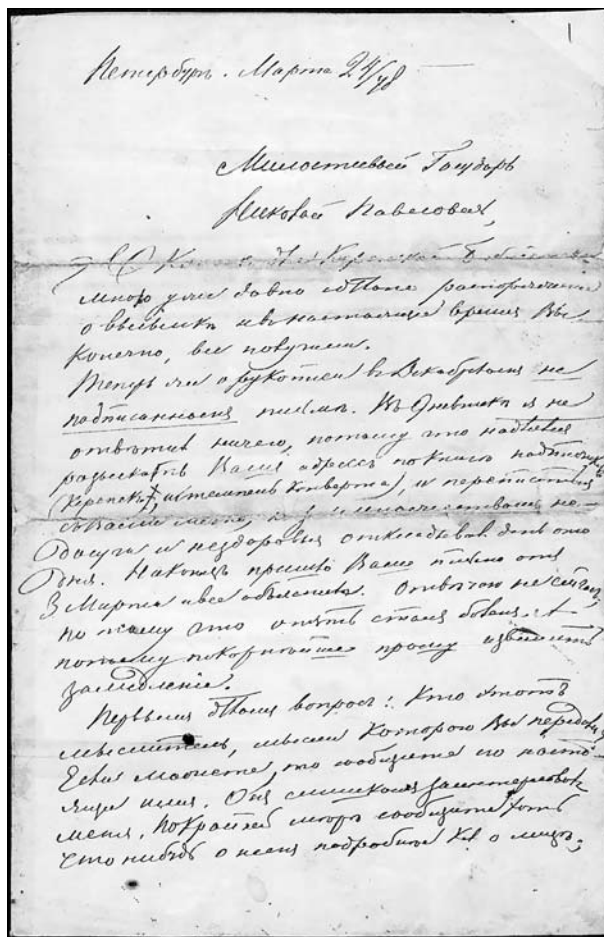 Петербургъ. Марта 24/78
Милостивый Государь
Николай Павловичъ,
О Книгахъ для Керенской Библіотеки
мною уже давно сдѣлано распоряженіе
о высылкѣ и въ настоящее время Вы,
конечно, все получили.
Теперь же о рукописи въ Декабрьскомъ не
подписанномъ письмѣ. Въ Дневникѣ я не
отвѣтилъ ничего, потому что надѣялся
разыскать Вашъ адрессъ по книгѣ подписчиковъ
(Керенскъ, штемпель конверта), и переписаться
съ Вами лично, но за множествомъ не-
досуга и нездоровья откладывалъ день ото
дня. Наконецъ пришло Ваше письмо отъ
3 Марта и все объяснило. Отвѣчаю не сейчасъ,
потому что опять сталъ боленъ. А
потому покорнѣйше прошу извинить
замедленіе.
Первымъ дѣломъ вопросъ: Кто этотъ
мыслитель, мысли котораго Вы передали?
Если можете то сообщите его насто-
ящее имя. Онъ слишкомъ заинтересовалъ
меня. По крайней мѣрѣ сообщите хоть
что нибудь о немъ подробнѣе какъ о лицѣ;